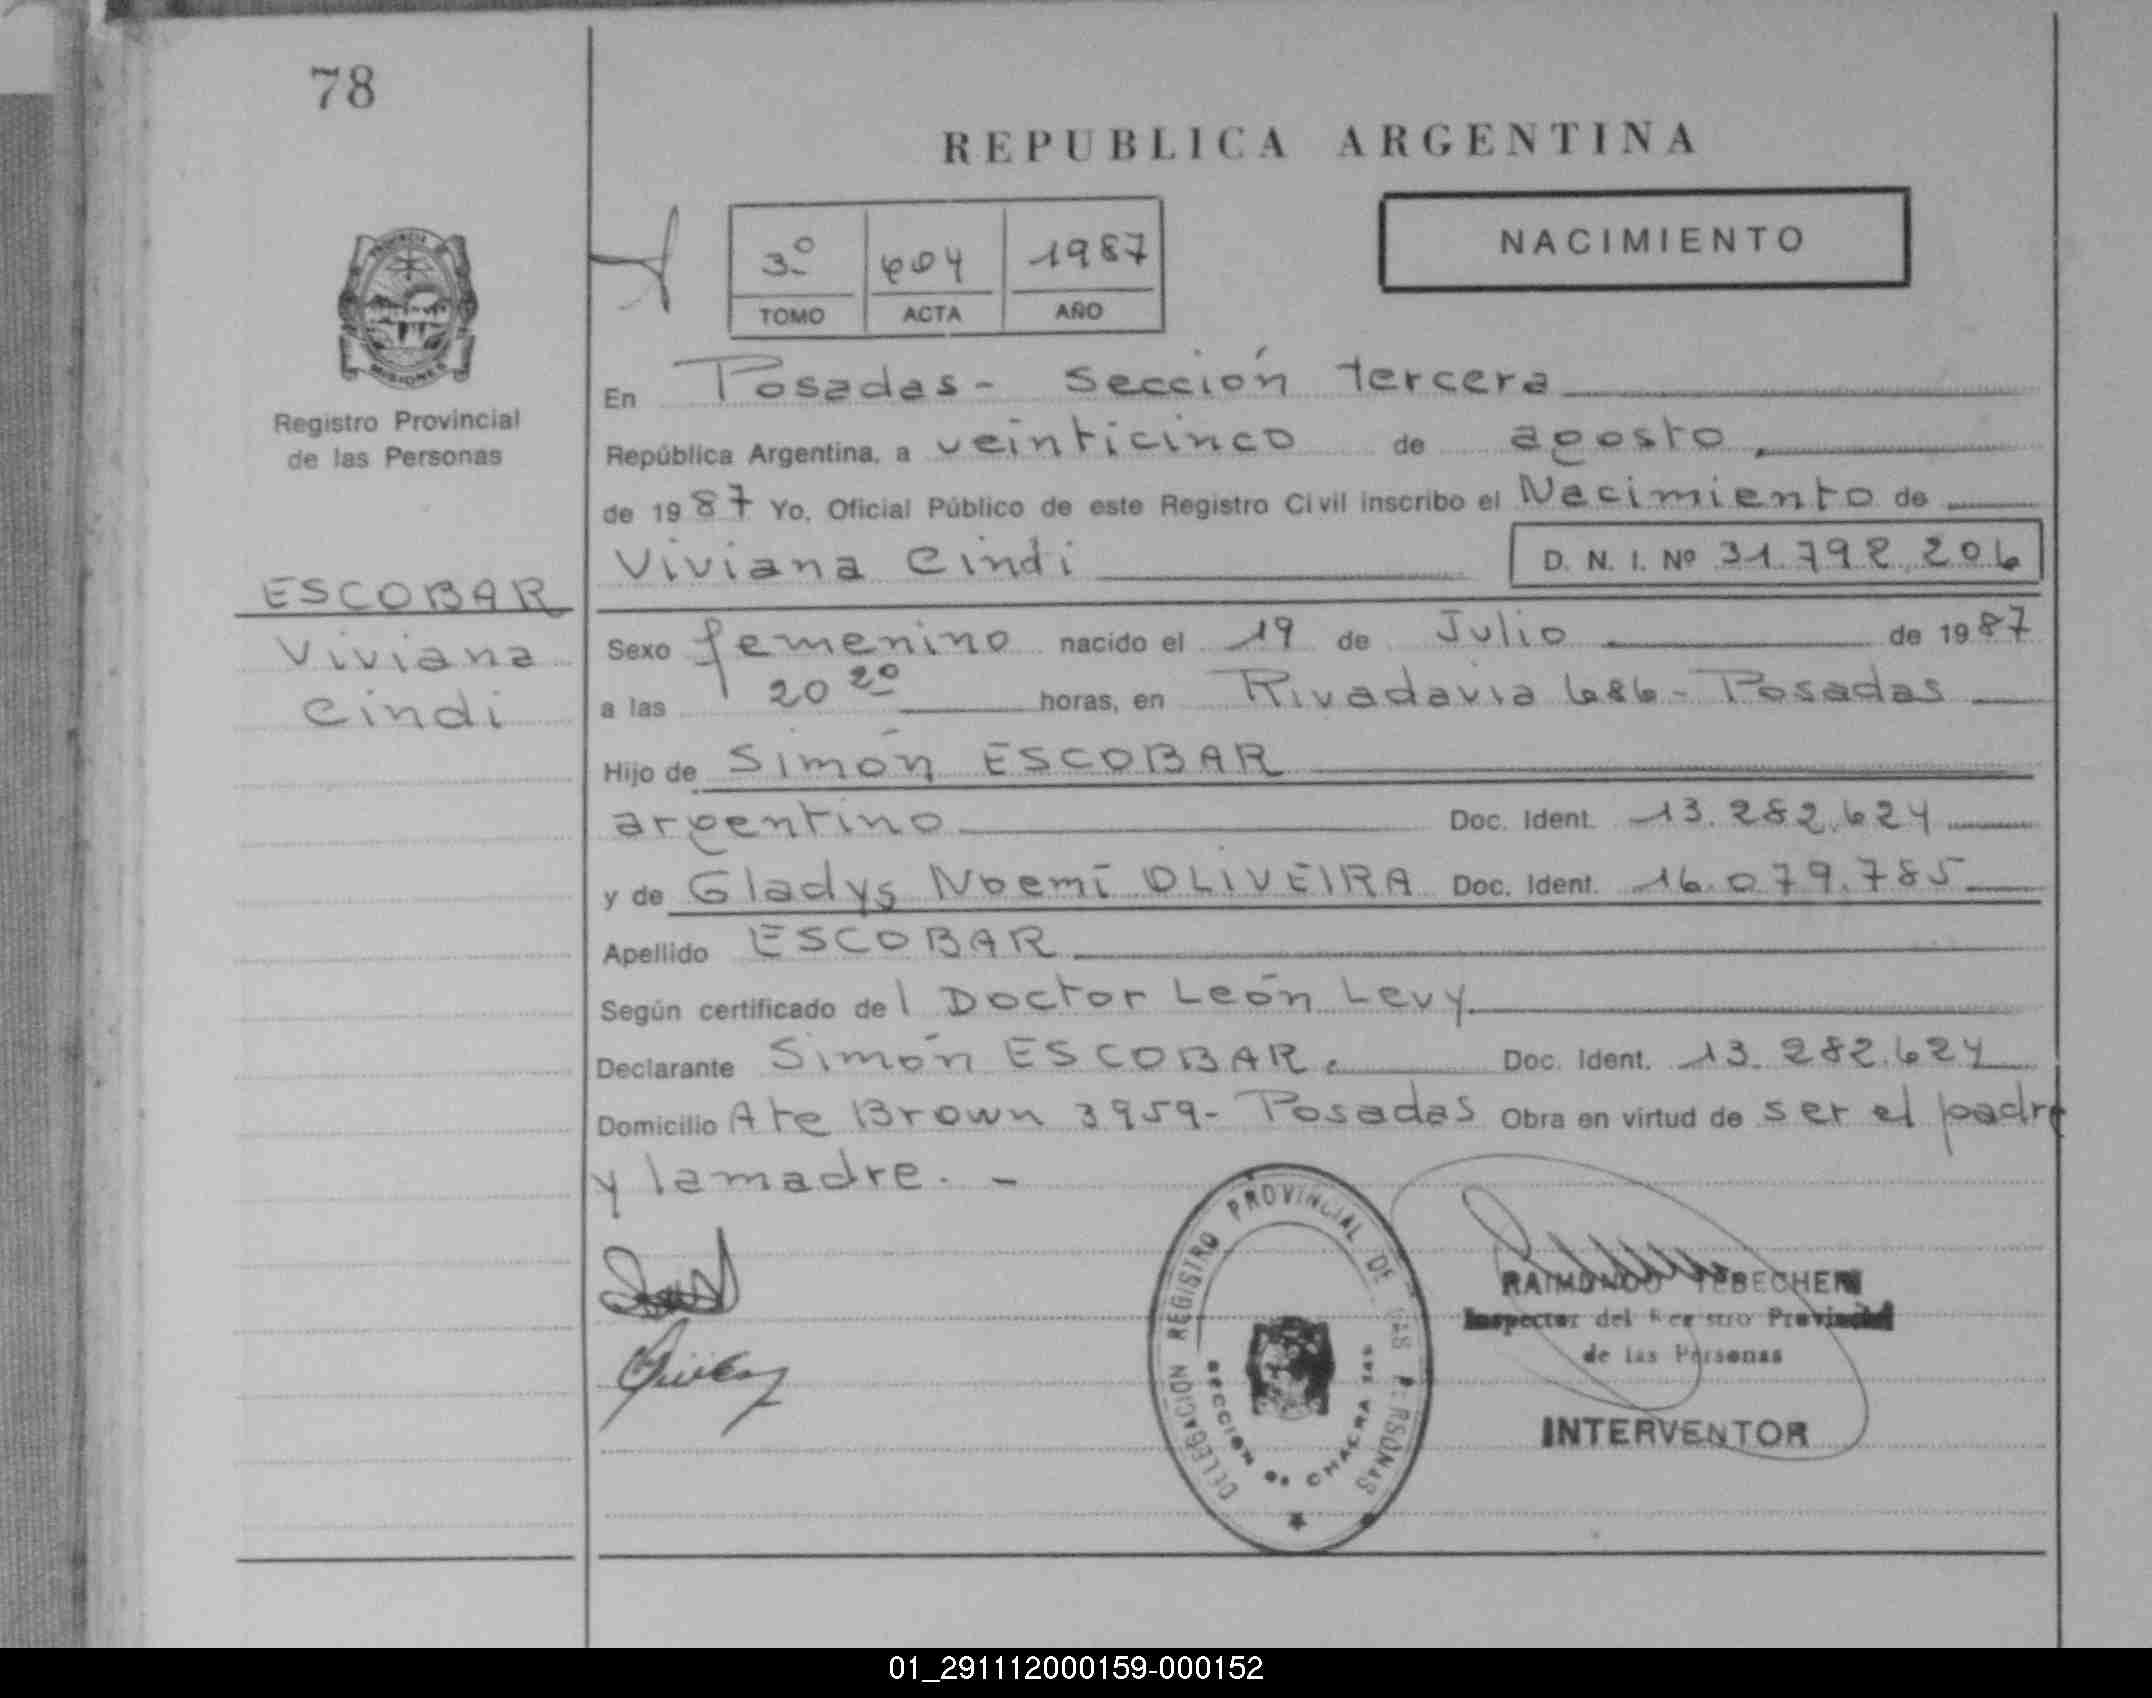 78
REPUBLICA ARGENTINA
NACIMIENTO
3º 604 1987
TOMO ACTA AÑO
MISIONES
Registro Provincial
de las Personas
ESCOBAR
Viviana
Cindi
En Posadas - Sección tercera
República Argentina, a veinticinco de agosto
de 1987 Yo, Oficial Público de este Registro Civil inscribo el Nacimiento de
Viviana Cindi D. N. I. Nº 31.792.206
Sexo femenino nacido el 19 de Julio de 1987
a las 20 20 horas, en Rivadavia 686 - Posadas
Hijo de Simón ESCOBAR
argentino Doc. Ident. 13.282.624
y de Gladys Noemí OLIVEIRA Doc. Ident. 16.079.785
Apellido ESCOBAR
Según certificado del Doctor León Levy
Declarante Simón ESCOBAR. Doc. Ident. 13.282.624
Domicilio Ate Brown 3959 - Posadas Obra en virtud de ser el padre
y la madre. -
DELEGACION REGISTRO PROVINCIAL DE LAS PERSONAS
SECCION 3a CHACRA
RAIMUNDO
Inspector del Registro Provincial
de las Personas
INTERVENTOR
01_291112000159-000152